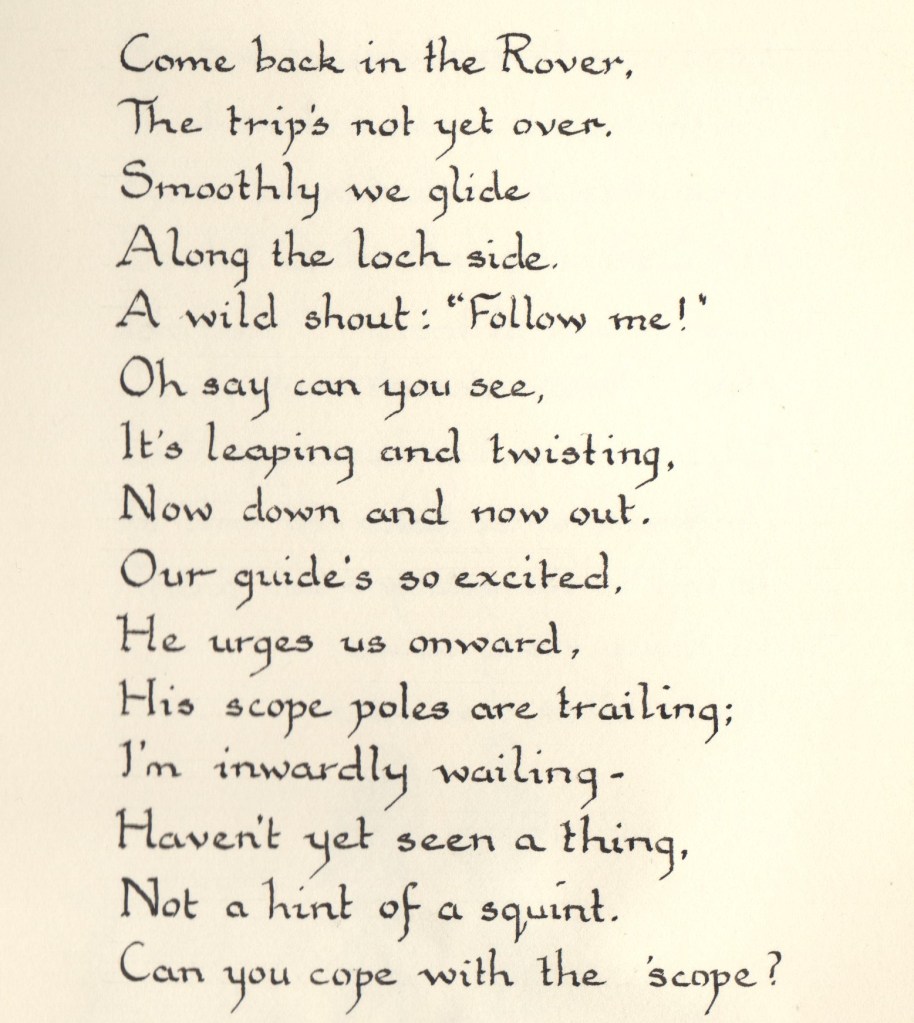 Come back in the Rover,
The trip's not yet over.
Smoothly we glide
Along the loch side.
A wild shout: "Follow me!"
Oh say can you see,
It's leaping and twisting,
Now down and now out.
Our guide's so excited,
He urges us onward,
His scope poles are trailing;
I'm inwardly wailing -
Haven't yet seen a thing,
Not a hint of a squint.
Can you cope with the 'scope?